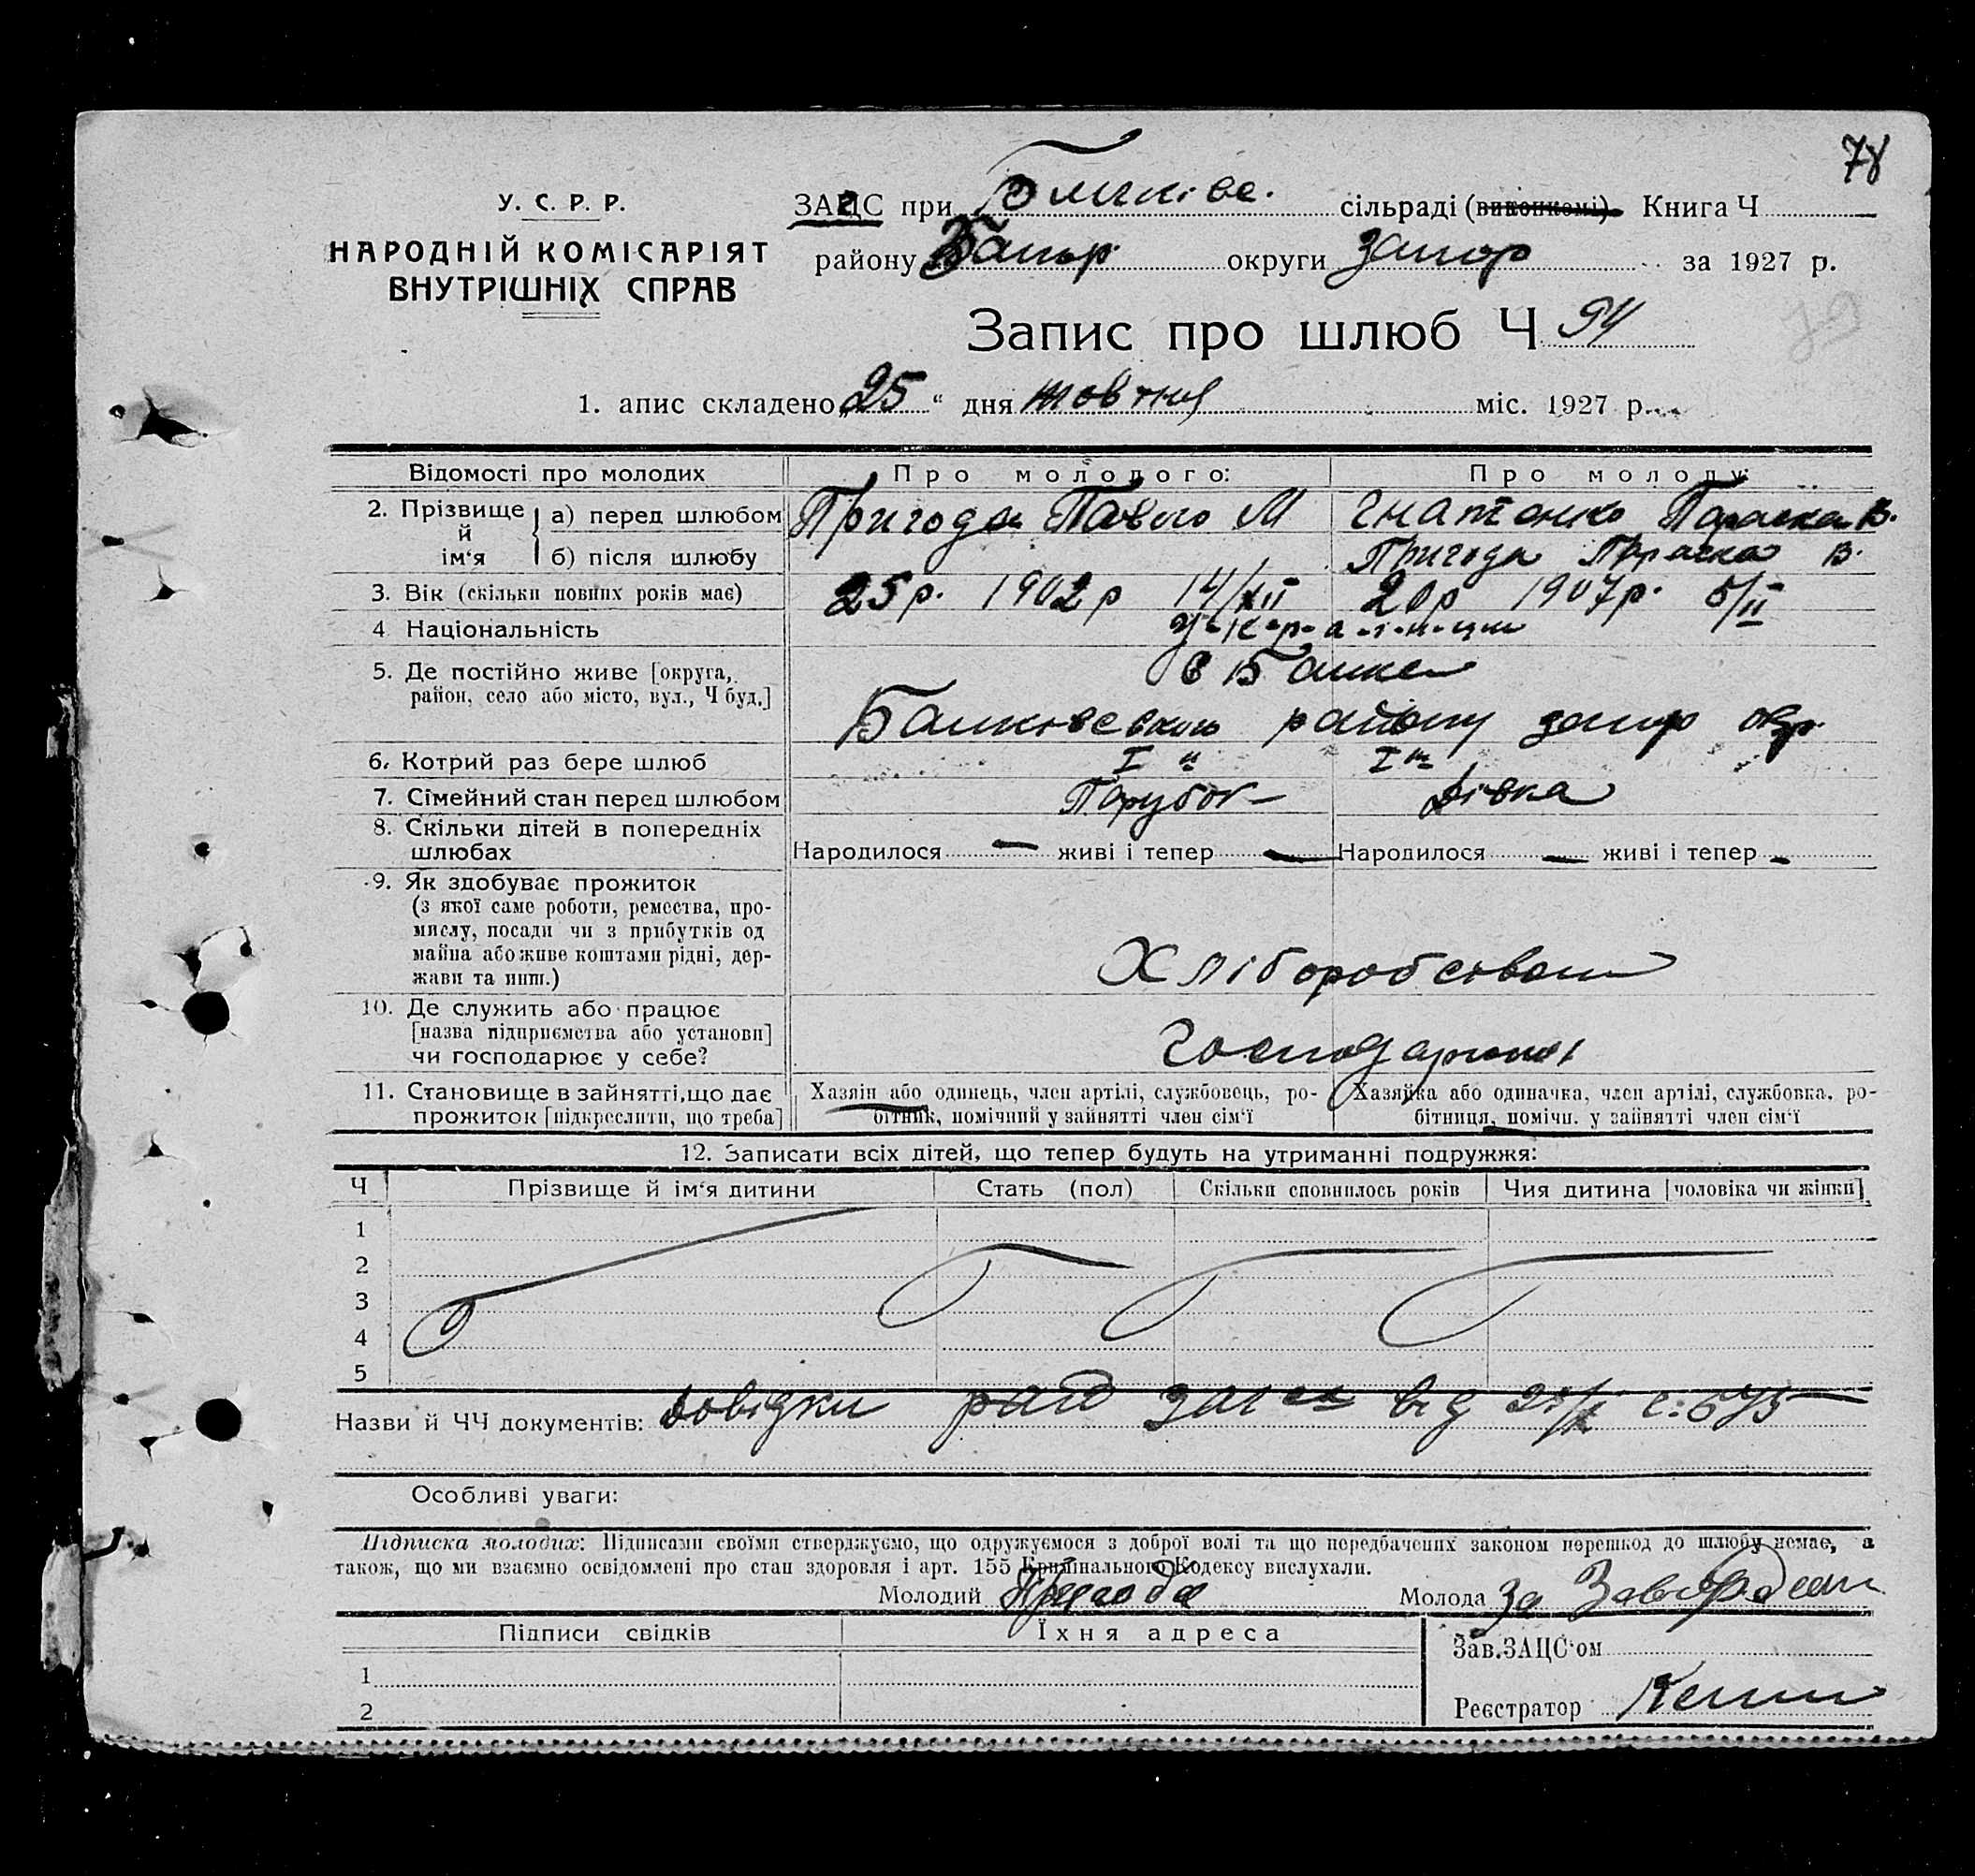 78
У. С. Р. Р.
НАРОДНІЙ КОМІСАРІЯТ
ВНУТРІШНІХ СПРАВ
ЗАЦС при сільраді (виконкомі). Книга Ч
району округи Запор за 1927 р.
Запис про шлюб Ч 94
79
1. апис складено „25“ дня жовтня міс. 1927 р.
Відомості про молодих Про молодого: Про молоду:
2. Прізвище й ім‘я а) перед шлюбом Пригода Павло М Гнатенко Параска В.
б) після шлюбу Пригода Параска В.
3. Вік (скільки повних років має) 25 р. 1902 р 14/XII 20 р 1907 р. 5/II
4 Національність У-к-р-а-ї-н-ци
5. Де постійно живе [округа, район, село або місто, вул., Ч буд.] в Балках
району запор окр.
6. Котрий раз бере шлюб I й I й
7. Сімейний стан перед шлюбом Парубок Дівка
8. Скільки дітей в попередніх шлюбах Народилося — живі і тепер — Народилося — живі і тепер —
9. Як здобуває прожиток
(з якої саме роботи, ремества, про-
мислу, посади чи з прибутків од
майна або живе коштами рідні, дер-
жави та инш.) Хліборобством
10. Де служить або працює
[назва підприємства або установи]
чи господарює у себе?
11. Становище в зайнятті, що дає
прожиток [підкреслити, що треба]
Хазяїн або одинець, член артілі, службовець, ро-
бітник, помічний у зайнятті член сім‘ї
Хазяйка або одиначка, член артілі, службовка, ро-
бітниця, помічн. у зайнятті член сім‘ї
12. Записати всіх дітей, що тепер будуть на утриманні подружжя:
Ч Прізвище й ім‘я дитини Стать (пол) Скільки сповнилось років Чия дитина [чоловіка чи жінки]
1
2
3
4
5
Назви й ЧЧ документів: Довідки від
Особливі уваги:
Підписка молодих: Підписами своїми стверджуємо, що одружуємося з доброї волі та що передбачених законом перешкод до шлюбу немає, а
також, що ми взаємно освідомлені про стан здоровля і арт. 155 Кримінального Кодексу вислухали.
Молодий Пригода Молода за
Підписи свідків Їхня адреса
Зав.ЗАЦС‘ом
1
Реєстратор
2